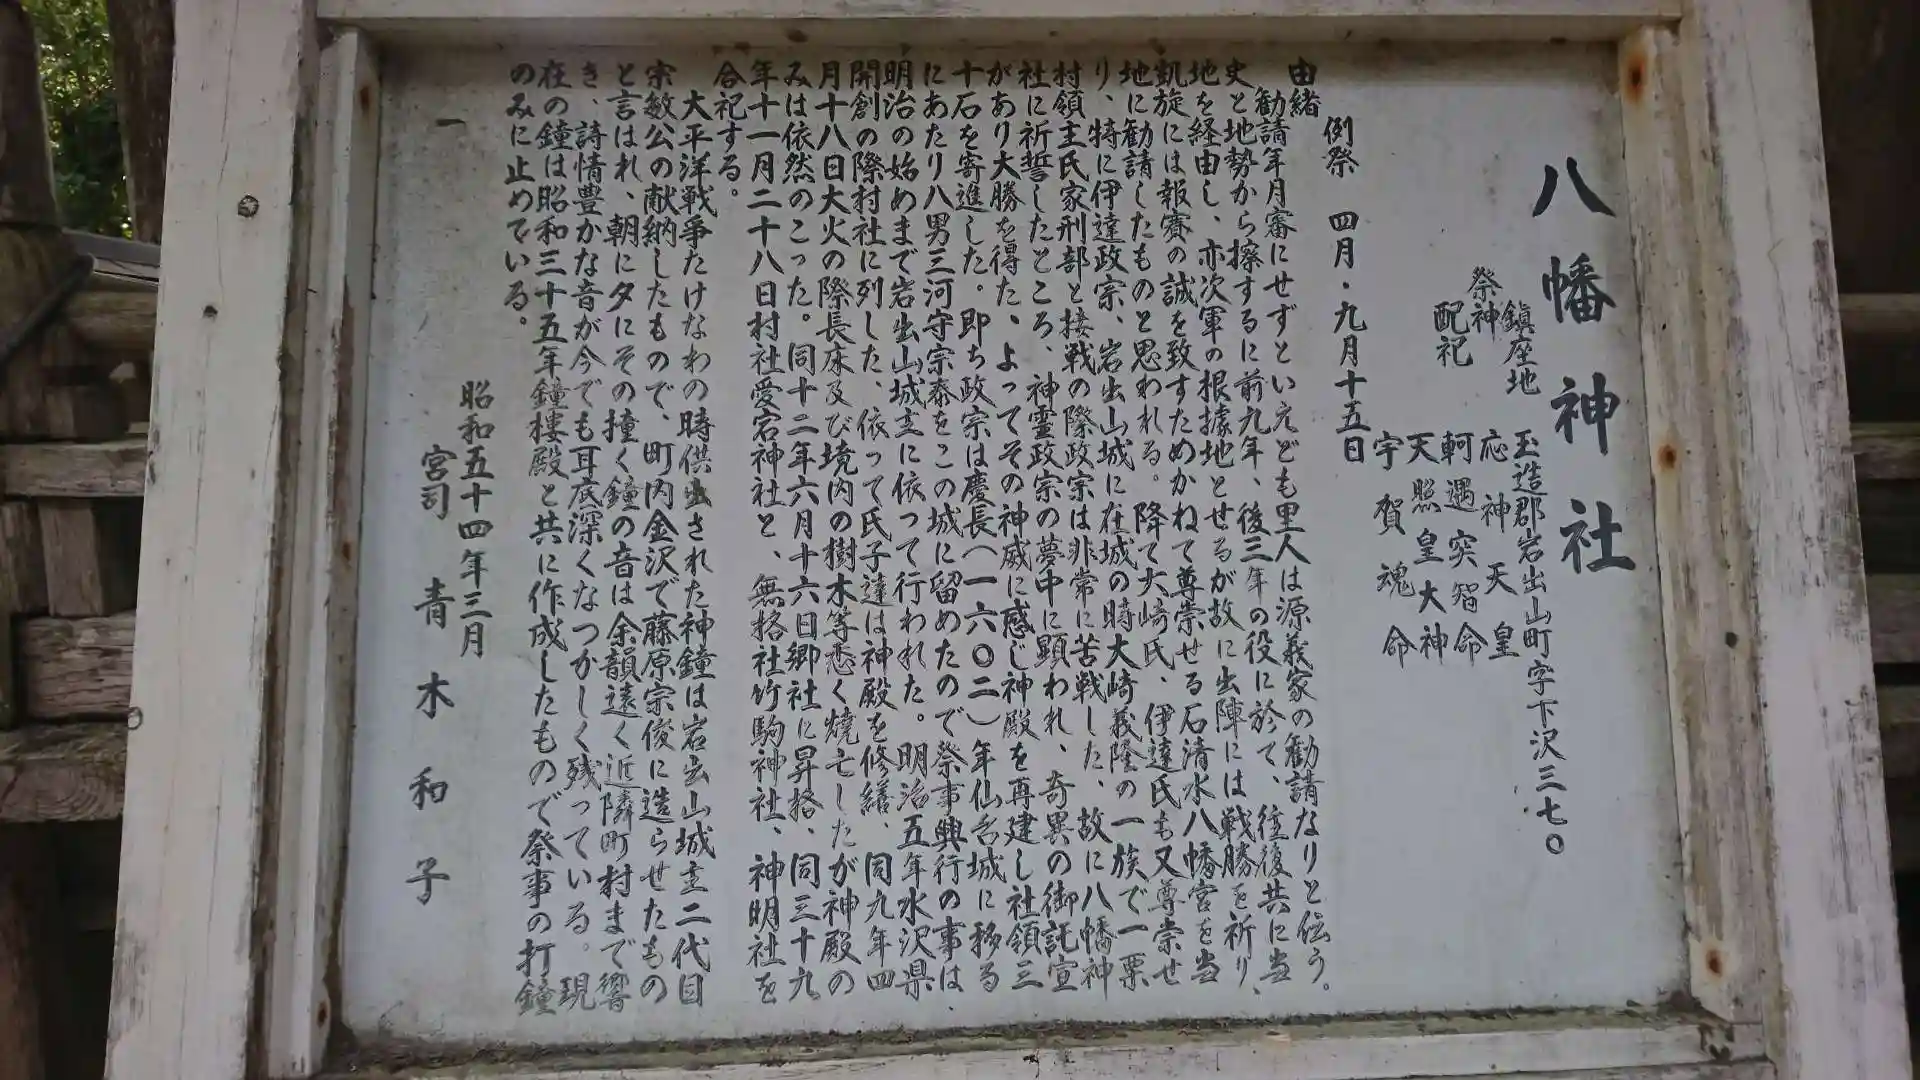 八幡神社
鎮座地　玉造郡岩出山町字下沢三七〇
祭神　応神天皇
配祀　軻遇突智命
天照皇大神
宇賀魂命
例祭　四月・九月十五日
由緒
勧請年月審にせずといえども里人は源義家の勧請なりと伝う。
史と地勢から擦するに前九年、後三年の役に於て、往後共に当
地を経由し、亦次軍の根據地とせるが故に出陣には戦勝を祈り、
凱旋には報賽の誠を致すためかねて尊崇せる石清水八幡宮を当
地に勧請したものと思われる。降て大崎氏、伊達氏も又尊崇せ
り、特に伊達政宗、岩出山城に在城の時大崎義隆の一族で一栗
村領主氏家刑部と接戦の際政宗は非常に苦戦した、故に八幡神
社に祈誓したところ、神霊政宗の夢中に顕われ、奇異の御託宣
があり大勝を得た、よってその神威に感じ神殿を再建し社領三
十石を寄進した。即ち政宗は慶長（一六〇二）年仙台城に移る
にあたり八男三河守宗泰をこの城に留めたので祭事興行の事は、
明治の始めまで岩出山城主に依って行われた。明治五年水沢県
開創の際村社に列した、依って氏子達は神殿を修繕、同九年四
月十八日大火の際長床及び境内の樹木等悉く焼亡したが神殿の
みは依然のこった。同十二年六月十六日郷社に昇格、同三十九
年十一月二十八日村社愛宕神社と、無格社竹駒神社、神明社を
合祀する。
大平洋戦争たけなわの時供出された神鐘は岩出山城主二代目
宗敏公の献納したもので、町内金沢で藤原宗俊に造らせたもの
と言はれ、朝に夕にその撞く鐘の音は余韻遠く近隣町村まで響
き、詩情豊かな音が今でも耳底深くなつかしく残っている。現
在の鐘は昭和三十五年鐘楼殿と共に作成したもので祭事の打鐘
のみに止めている。
一
昭和五十四年三月
宮司　青木和子